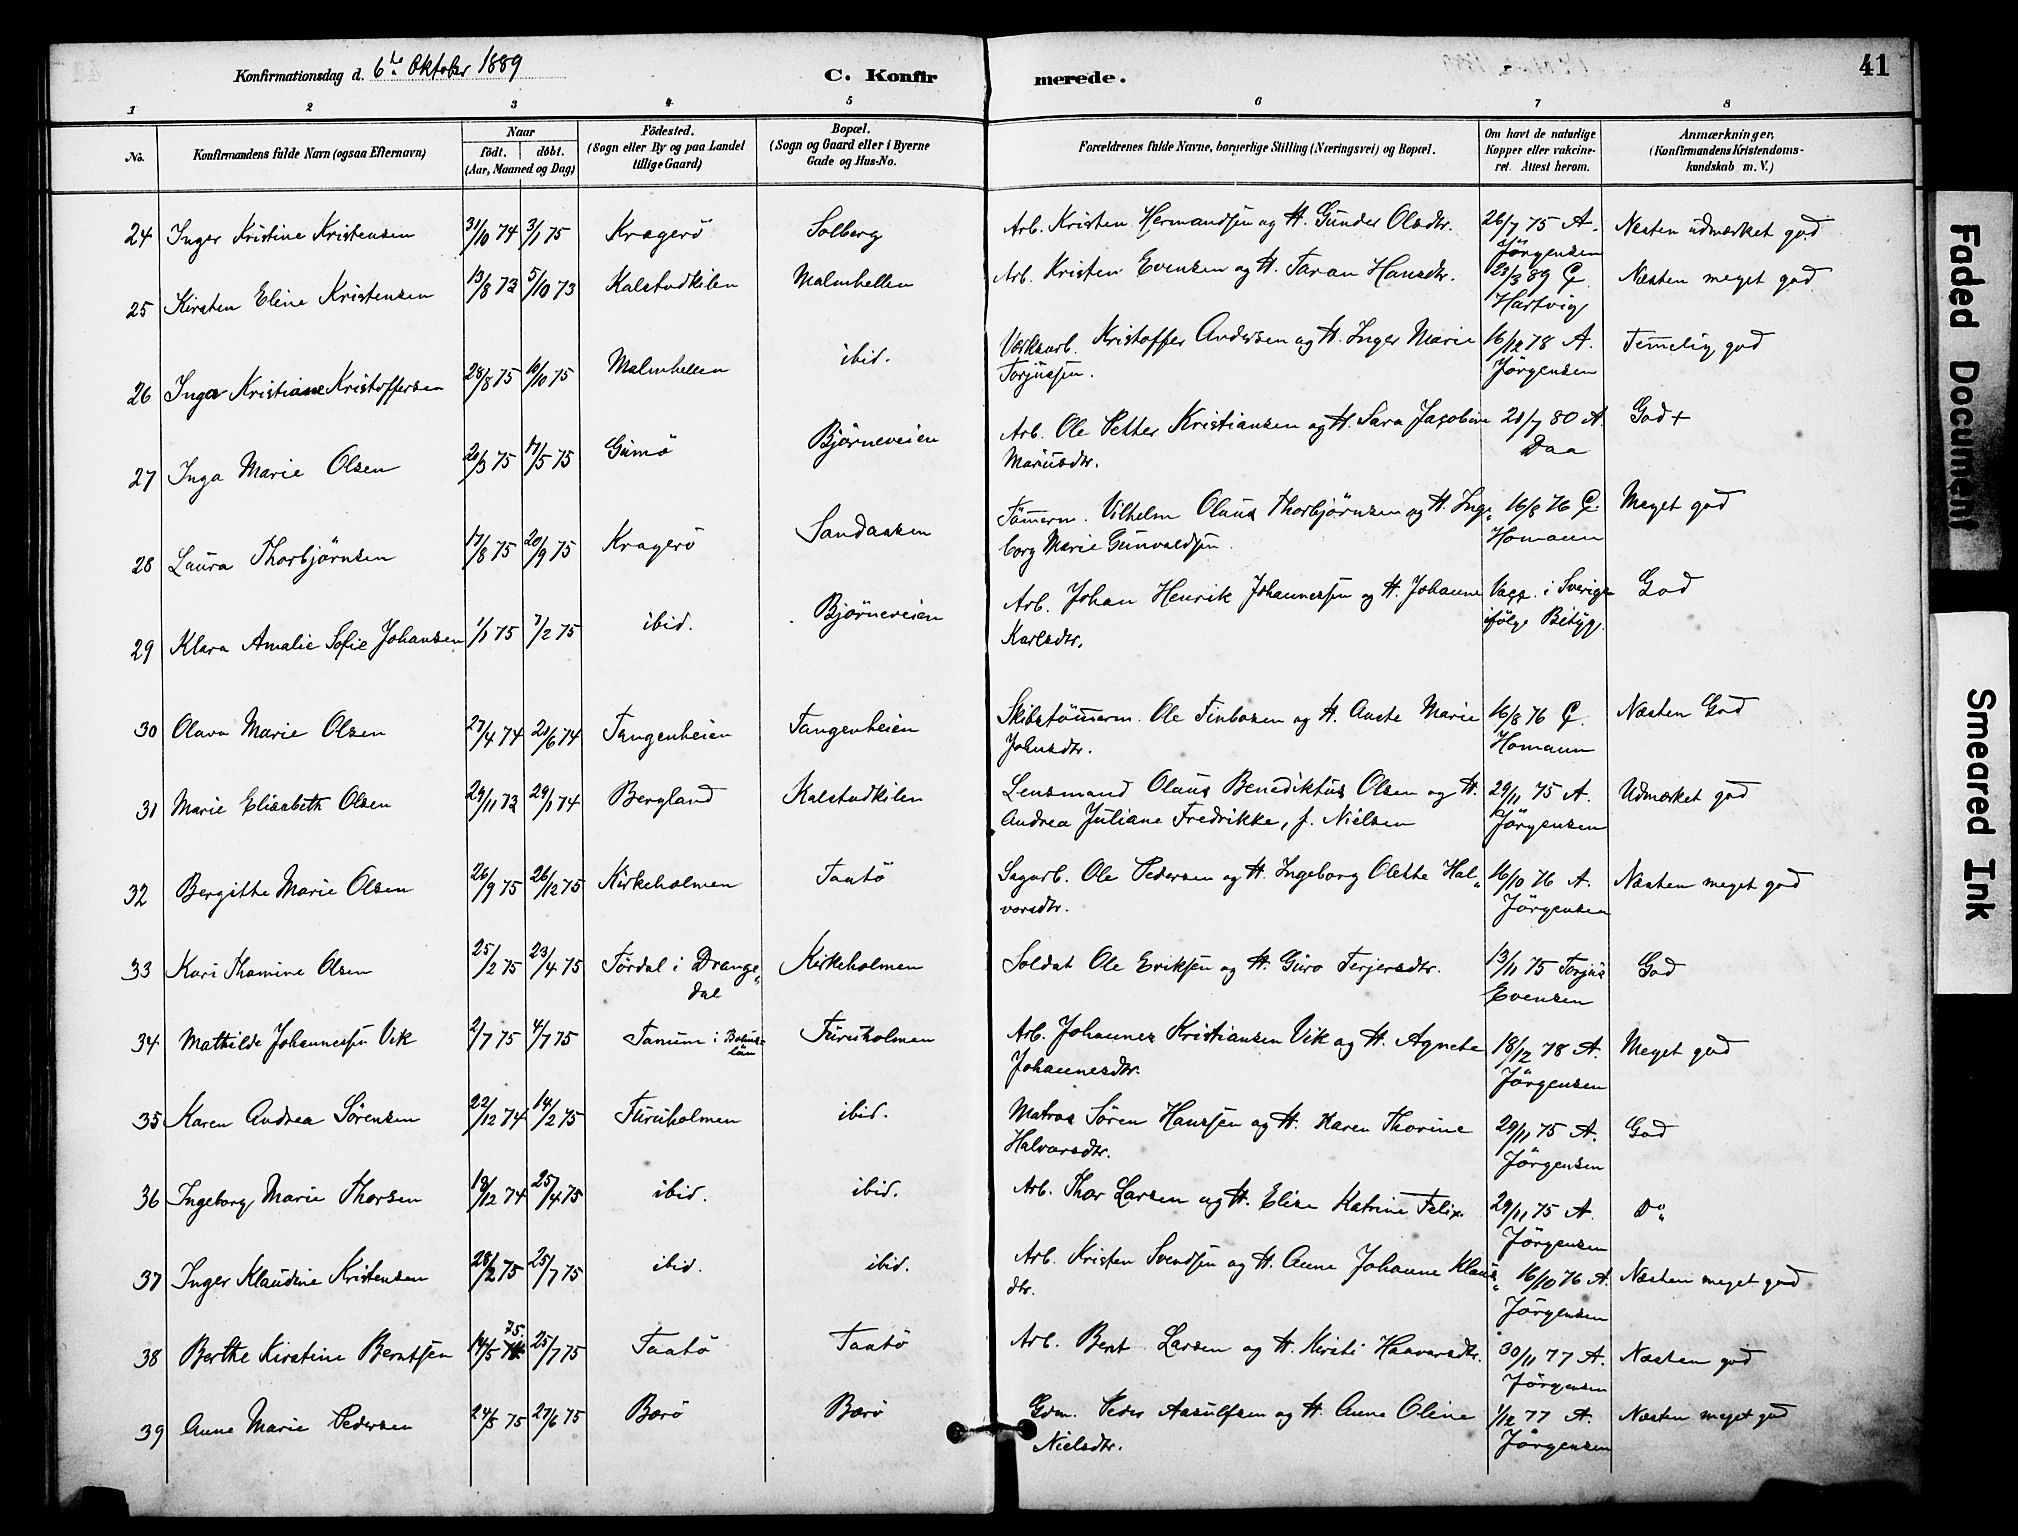 Konfirmationsdag d. 6te Oktober 1889
C. Konfirmerede.
41
1 2 3 4 5 6 7 8
No.
Konfirmandens fulde Navn (ogsaa Efternavn)
Naar
födt. döbt.
(Aar, Maaned og Dag)
Födested.
(Sogn eller By og paa Landet
tillige Gaard)
Bopæl.
(Sogn og Gaard eller i Byerne
Gade og Hus-No.
Forældrenes fulde Navne, borgerlige Stilling (Næringsvei) og Bopæl.
Om havt de naturlige
Kopper eller vakcine-
ret. Attest herom.
Anmærkninger.
(Konfirmandens Kristendoms-
kundskab m. V.)
24 Inger Kristine Kristensen 31/10 74 3/1 75 Kragerö Solberg Arb. Kristen Hermandsen og H. Gunder Olsdtr. 26/7 75 A. Næsten udmærket god
Jörgensen
25 Kirsten Eline Kristensen 13/8 73 5/10 73 Kalstadkilen Malmhellen Arb. Kristen Evensen og H. Taran Hansdtr. 23/3 89 C. Næsten meget god
Hartvig
26 Inga Kristiane Kristoffersen 28/8 75 10/10 75 Malmhellen ibid. Værksarb. Kristoffer Andersen og H. Inger Marie 16/12 78 A. Temelig god
Torjussen. Jörgensen
27 Inga Marie Olsen 20/3 75 17/5 75 Gumö Björneveien Arb. Ole Petter Kristiansen og H. Sara Jacobine 21/7 80 A. God +
Mariusdtr. Daa
28 Laura Thorbjörnsen 17/8 75 20/9 75 Kragerö Sandaasen Tömerm. Vilhelm Olaus Thorbjörnsen og H. Inge- 16/8 76 C. Meget god
borg Marie Gunvaldsen. Homann
29 Klara Amalie Sofie Johansen 1/1 75 7/2 75 ibid. Björneveien Arb. Johan Henrik Johannessen og H. Johanne Vacc. i Sverige God
Karlsdtr. ifölge Bityg.
30 Olava Marie Olsen 27/4 74 21/6 74 Tangenheien Tangenheien Skibstömerm. Ole Finbosen og H. Aaste Marie 16/8 76 C. Næsten God
Johnsdtr. Homann
31 Marie Elisabeth Olsen 29/11 73 29/1 74 Bergland Kalstadkilen Lensmand Olaus Benediktus Olsen og H. 29/11 75 A. Udmærket god
Andrea Juliane Fredrikke, f. Nielsen Jörgensen
32 Bergitte Marie Olsen 26/9 75 26/12 75 Kirkeholmen Taatö Sagarb. Ole Pedersen og H. Ingeborg Olette Hal- 16/10 76 A. Næsten meget god
vorsdtr. Jörgensen
33 Kari Thomine Olsen 25/2 75 23/4 75 Tördal i Drange- Kirkeholmen Soldat Ole Eriksen og H. Guro Terjersdtr. 13/11 75 Torjus God
dal Evensen
34 Mathilde Johannessen Vik 2/7 75 4/7 75 Tanum i Bohus- Furuholmen Arb. Johannes Kristiansen Vik og H. Agnete 18/12 78 A. Meget god
län Johannesdtr. Jörgensen
35 Karen Andrea Sörensen 22/12 74 14/2 75 Furuholmen ibid. Matros Sören Hanssen og H. Karen Thorine 29/11 75 A. God
Halvorsdtr. Jörgensen
36 Ingeborg Marie Thorsen 18/12 74 25/4 75 ibid. ibid. Arb. Thor Larsen og H. Elise Katrine Felix. 29/11 75 A. Do
Jörgensen
37 Inger Klaudine Kristensen 28/2 75 25/7 75 ibid. ibid. Arb. Kristen Svendsen og H. Anne Johanne Klaus- 16/10 76 A. Næsten meget god
dtr. Jörgensen
38 Berthe Kirstine Berntsen 14/5 75. 25/7 75 Taatö Taatö Arb. Bent Larsen og H. Kirsti Haavorsdtr. 30/11 77 A. Næsten god
Jörgensen
39 Anne Marie Pedersen 24/5 75 27/6 75 Barö Barö Gdm. Peder Aasulfsen og H. Anne Oline 1/12 77 A. Næsten meget god
Nielsdtr. Jörgensen
Faded Document
Smeared Ink